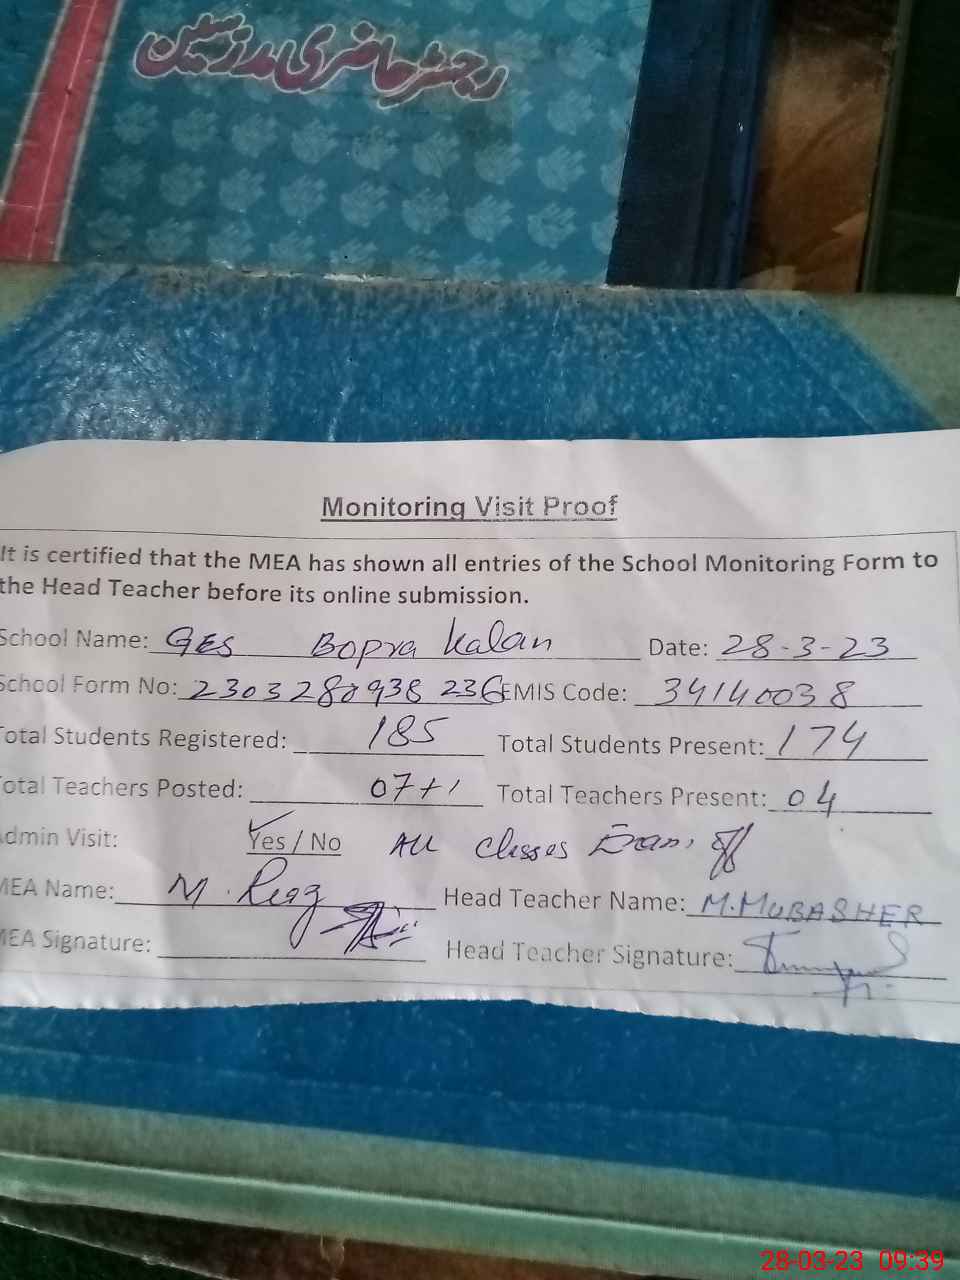 رجسٹر حاضری مدرسین
Monitoring Visit Proof
It is certified that the MEA has shown all entries of the School Monitoring Form to
the Head Teacher before its online submission.
School Name: GES Bopra Kalan Date: 28-3-23
School Form No: 2303280938236 EMIS Code: 34140038
Total Students Registered: 185 Total Students Present: 174
Total Teachers Posted: 07+1 Total Teachers Present: 04
Admin Visit: Yes / No All Classes off
MEA Name: M. Riaz Head Teacher Name: M.MUBASHER
MEA Signature: Head Teacher Signature:
28-03-23 09:39